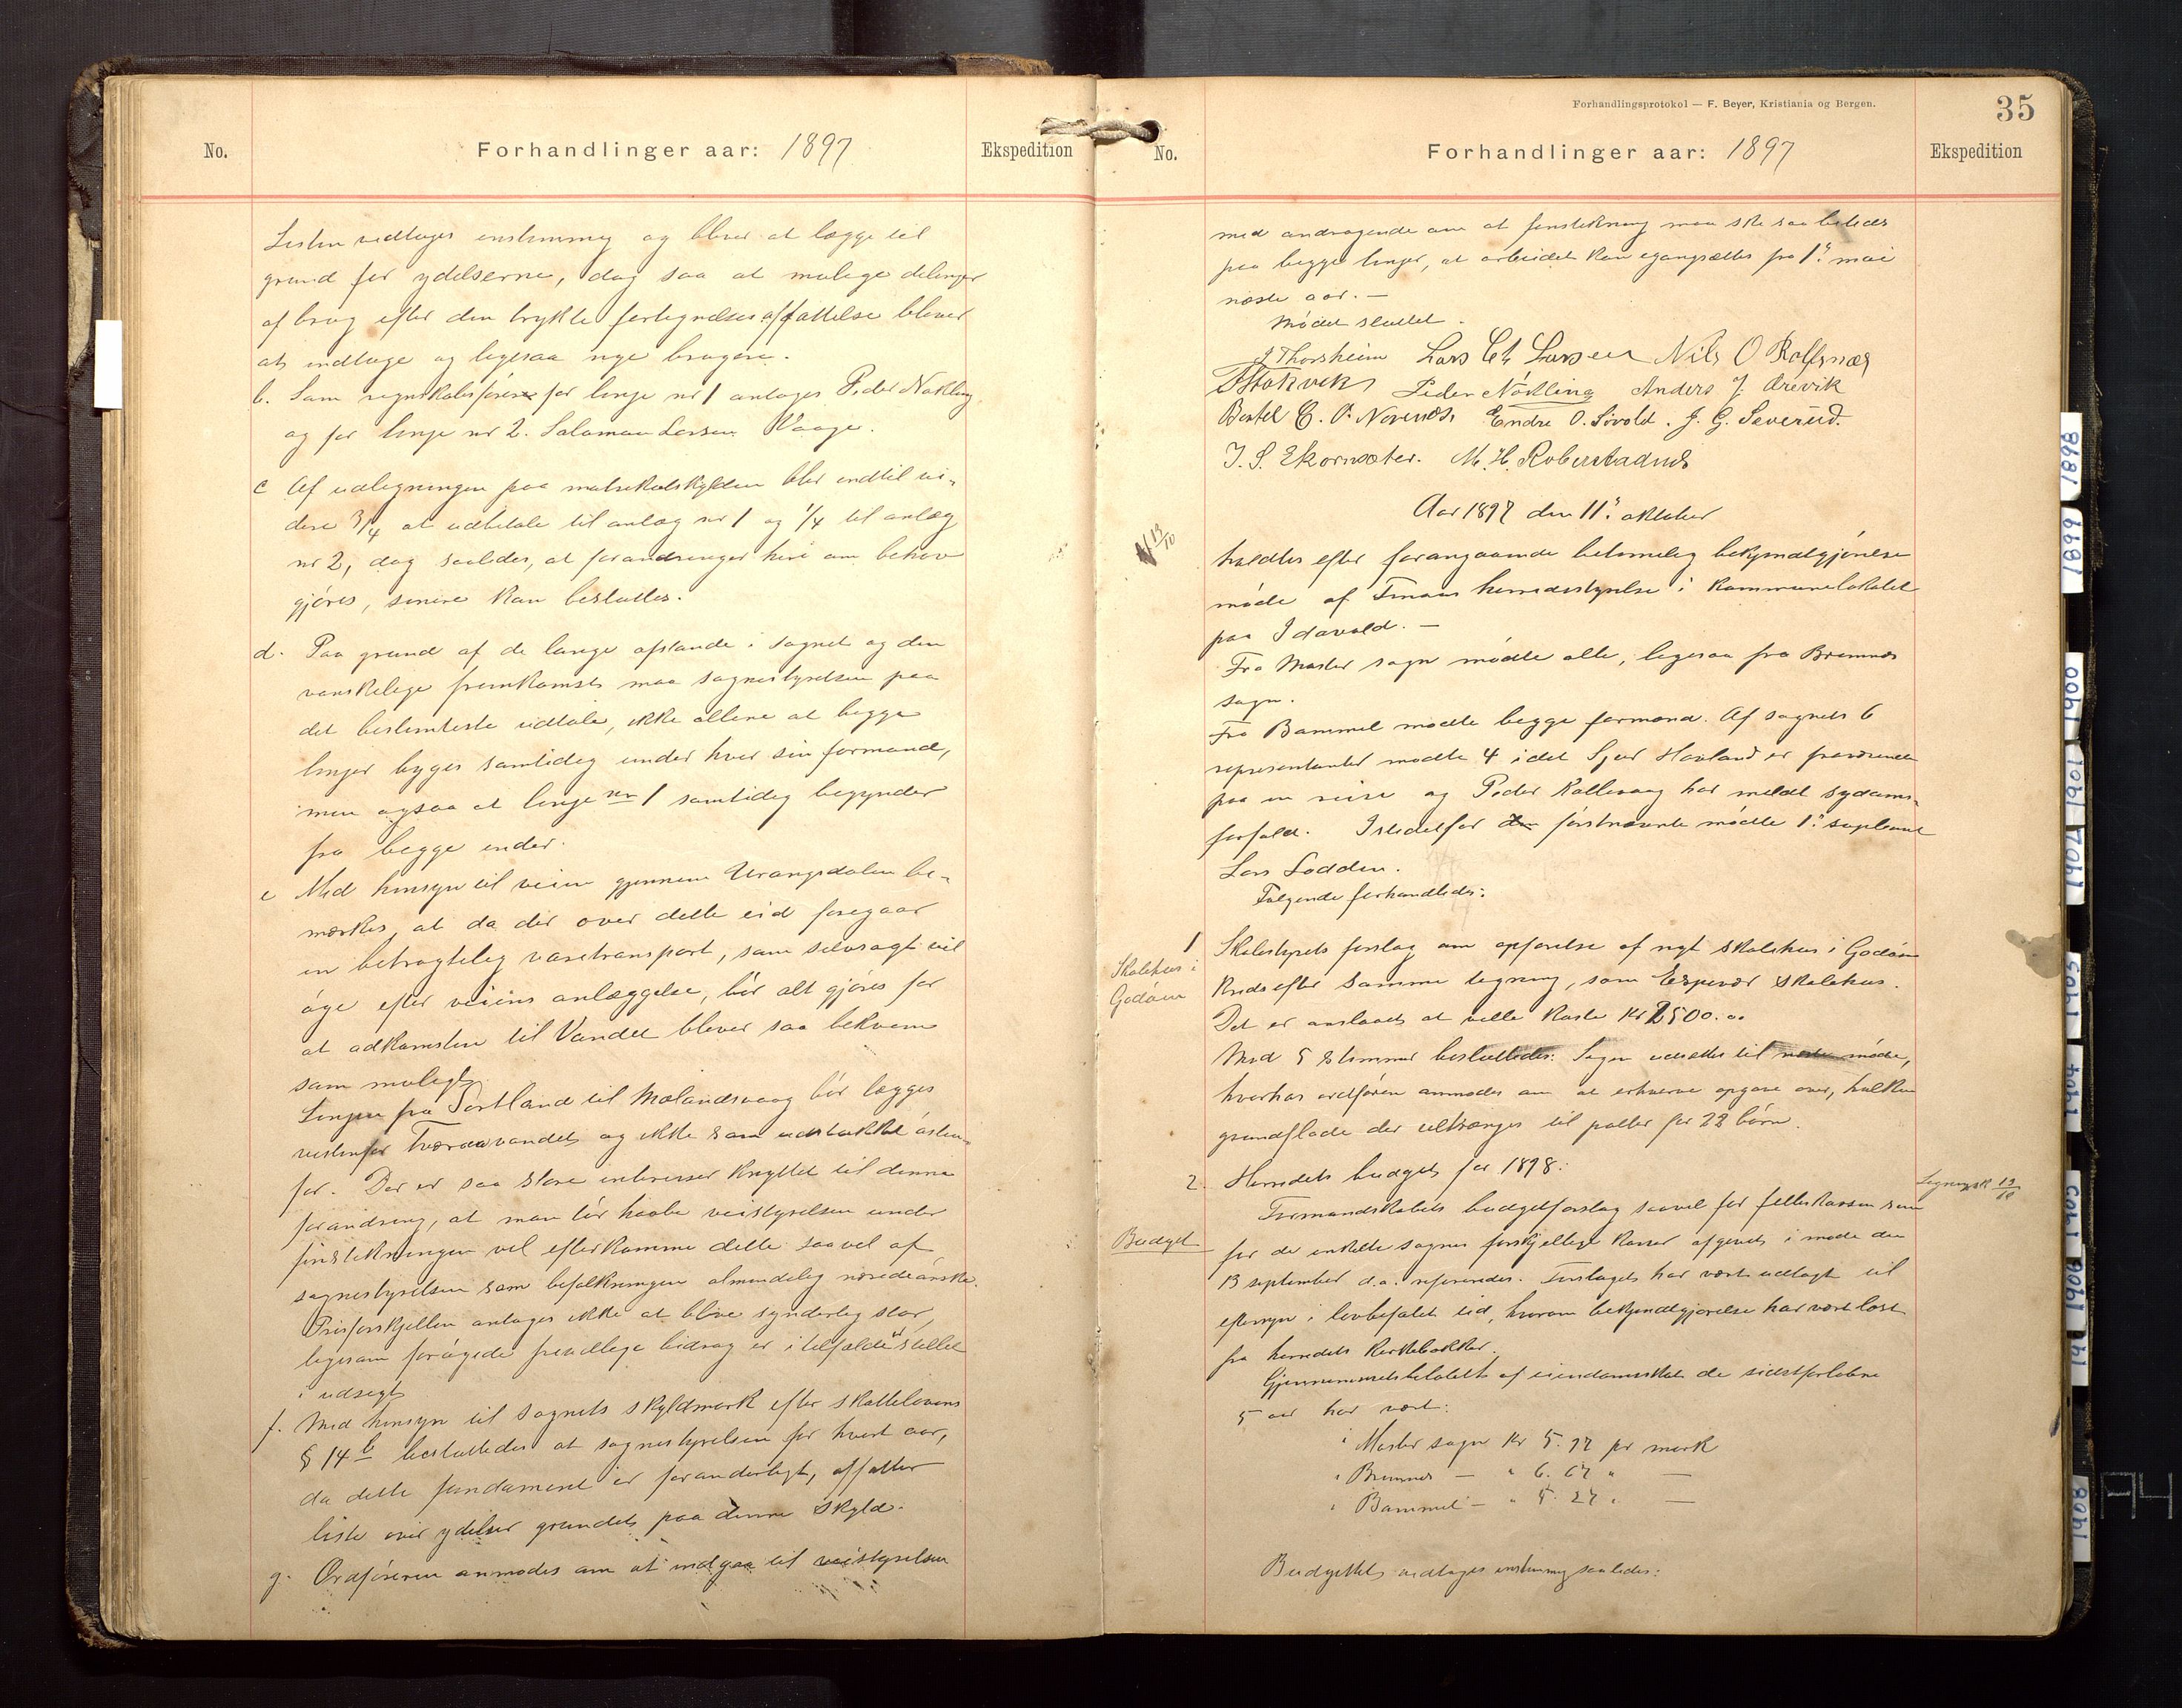 No.
Forhandlinger aar: 1897
Ekspedition
Listen vedtages enstemmig og bliver at lægge til
grund for ydelserne, dog saa at mulige delinger
af brug efter den trykte fortegnelses affattelse bliver
at indtage og ligesaa nye brugere.
b. Som regnskabsfører for linje nr 1 antages Peder Nøkling
og for linje nr 2. Salomon Larsen Vaage.
c Af udligningen paa matrikulskylden blir indtil vi-
dere 3/4 at udbetale til anlæg nr 1 og 1/4 til anlæg
nr 2, dog saaledes, at forandringer heri om behov
gjøres, senere kan besluttes.
d. Paa grund af de lange afstande i sognet og den
vanskelige fremkomst maa sognestyrelsen paa
det bestemteste udtale, ikke allene at begge
linjer bygges samtidig under hver sin formand,
men ogsaa at linje nr 1 samtidig begynder
fra begge ender.
e Med hensyn til veien gjennem Urangsdalen be-
mærkes, at da der over dette eid foregaar
en betragtelig varetransport, som selvsagt vil
øge efter veiens anlæggelse, bør alt gjøres for
at adkomsten til Vandet bliver saa bekvem
som muligt.
Linjen fra Sortland til Mælandsvaag bør lægges
vestenfor Tveraavandet og ikke som udstukket østen-
for. Der er saa store interesser knyttet til denne
forandring, at man tør haabe veistyrelsen under
finstikningen vil efterkomme dette saavel af
sognestyrelsen som befolkningen almindelig nærede ønske.
Prisforskjellen antages ikke at blive synderlig stor,
ligesom forøgede frivillige bidrag er i tilfælde stillet
i udsigt
f. Med hensyn til sognets skyldmark efter skattelovens
§ 14 b besluttedes at sognestyrelsen for hvert aar,
da dette fundament er foranderligt, affatter
liste over ydelser grundet paa denne skyld.
g. Ordføreren anmodes om at indgaa til veistyrelsen
Forhandlingsprotokol — F. Beyer, Kristiania og Bergen.
35
No.
Forhandlinger aar: 1897
Ekspedition
med andragende om at finstikning maa ske saa betids
paa begge linjer, at arbeidet kan igangsættes fra 1ste mai
næste aar. —
Mødet sluttet.
J Thorsheim Lars Chr Larsen Nils O Rolfsnæs
Peder Nøkling Anders J. Ørevik
Bertel C. Endre O. Siovold. J. G. Severud.
J. S. Ekornsæter. M. H. Robberstadnes
Aar 1897 den 11te oktober
13/10
holdtes efter forangaaende betimelig bekjendtgjørelse
møde af Finaas herredsstyrelse i kommunelokalet
paa Idavold. —
Fra Moster sogn mødte alle, ligesaa fra Bremnes
sogn.
Fra Bømmel mødte begge formænd. Af sognets 6
repræsentanter mødte 4 idet Sjur Hovland er fraværende
paa en reise og Peder Kallevaag har meldt sygdoms-
forfald. Istedetfor førstnævnte mødte 1ste supleant
Lars Lodden.
Følgende forhandledes:
1 Skolestyrets forslag om opførelse af nyt skolehus i Godøen
Skolehus i
Godøen
Kreds efter samme tegning, som Espevær skolehus.
Det er anslaaet at ville koste kr 2500.00
Med 5 stemmer besluttedes: Sagen udsættes til næste møde,
hvorhos ordføren anmodes om at erhverve opgave over, hvilken
grundflade der udkræves til pulter for 28 børn.
2. Herredets budget for 1898:
Budget
13/10
Formandskabets budgetforslag saavel for fælleskassen som
for de enkelte sognes forskjellige kasser afgivet i møde den
13 september d.a. refereredes. Forslaget har været udlagt til
eftersyn i lovbefalet tid, hvorom bekjendtgjørelse har været læst
fra herredets kirkebakker.
Gjennemsnitsbeløbet af eiendomsskat de sidstforløbne
5 aar har været:
i Moster sogn kr 5.97 pr mark
" Bremnes — " 6.67 " —
" Bømmel — " 5.27 " —
Budgettet vedtages enstemmig saaledes:
1898
1899
1900
1901
1902
1903
1904
1905
1906
1908